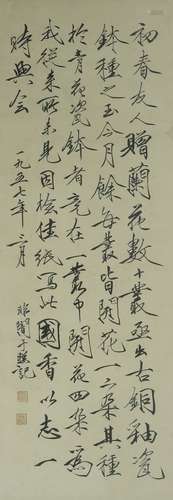 初春友人贈蘭花數十叢並出古銅釉瓷
鉢種之至今月餘每叢皆開花一二朶其種
於青花瓷鉢者竟在一叢中開花四朶爲
我從來所未見因檢佳紙寫此國香以志一
時興會 一九五七年三月 非闇于照記